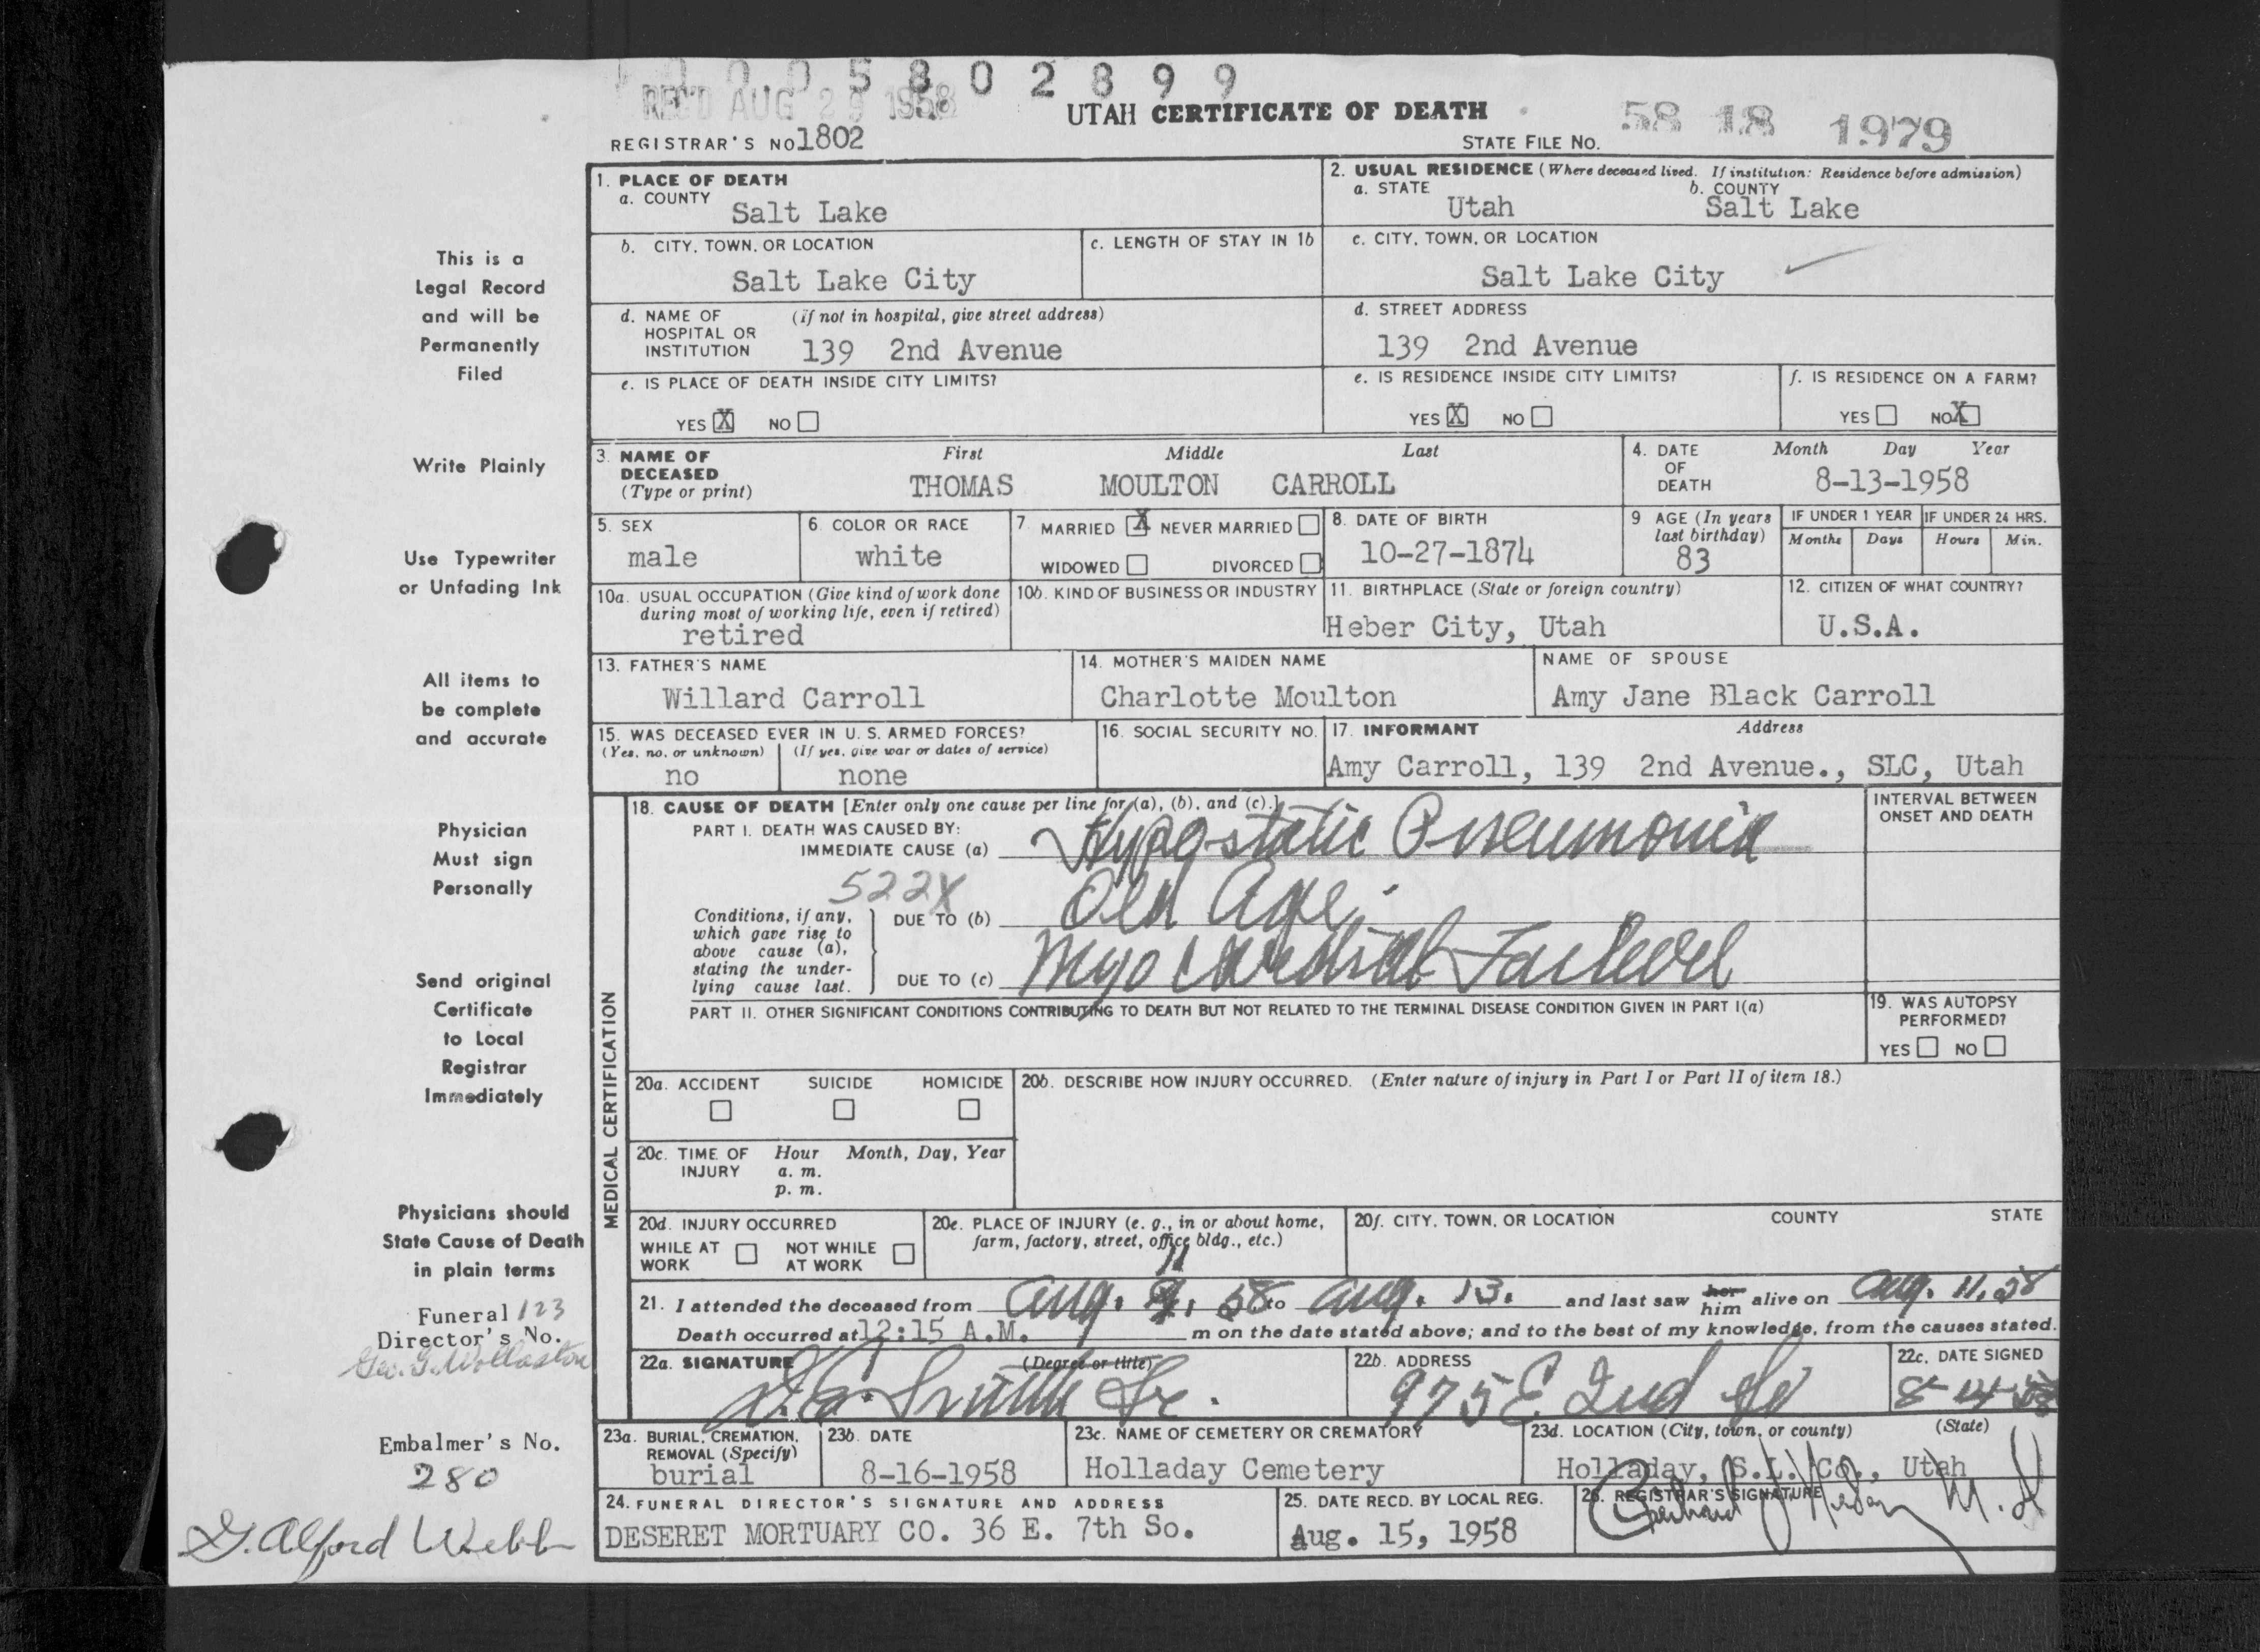 0 0 0 5 8 0 2 8 9 9
REC'D AUG 29 1958
UTAH CERTIFICATE OF DEATH
58 18 1979
REGISTRAR'S NO 1802
STATE FILE NO.
1. PLACE OF DEATH
a. COUNTY
Salt Lake
2. USUAL RESIDENCE (Where deceased lived. If institution: Residence before admission)
a. STATE
Utah
b. COUNTY
Salt Lake
b. CITY, TOWN, OR LOCATION
Salt Lake City
c. LENGTH OF STAY IN 1b
c. CITY, TOWN, OR LOCATION
Salt Lake City
d. NAME OF HOSPITAL OR INSTITUTION
(If not in hospital, give street address)
139 2nd Avenue
d. STREET ADDRESS
139 2nd Avenue
e. IS PLACE OF DEATH INSIDE CITY LIMITS?
YES X NO
e. IS RESIDENCE INSIDE CITY LIMITS?
YES X NO
f. IS RESIDENCE ON A FARM?
YES NO X
3. NAME OF DECEASED
(Type or print)
First Middle Last
THOMAS MOULTON CARROLL
4. DATE OF DEATH
Month Day Year
8-13-1958
5. SEX
male
6. COLOR OR RACE
white
7. MARRIED X NEVER MARRIED
WIDOWED DIVORCED
8. DATE OF BIRTH
10-27-1874
9 AGE (In years last birthday)
83
IF UNDER 1 YEAR
Months Days
IF UNDER 24 HRS.
Hours Min.
10a. USUAL OCCUPATION (Give kind of work done during most of working life, even if retired)
retired
10b. KIND OF BUSINESS OR INDUSTRY
11. BIRTHPLACE (State or foreign country)
Heber City, Utah
12. CITIZEN OF WHAT COUNTRY?
U.S.A.
13. FATHER'S NAME
Willard Carroll
14. MOTHER'S MAIDEN NAME
Charlotte Moulton
NAME OF SPOUSE
Amy Jane Black Carroll
15. WAS DECEASED EVER IN U. S. ARMED FORCES?
(Yes, no, or unknown) (If yes, give war or dates of service)
no none
16. SOCIAL SECURITY NO.
17. INFORMANT Address
Amy Carroll, 139 2nd Avenue., SLC, Utah
MEDICAL CERTIFICATION
18. CAUSE OF DEATH [Enter only one cause per line for (a), (b), and (c).]
PART I. DEATH WAS CAUSED BY:
IMMEDIATE CAUSE (a) Hypostatic Pneumonia
522X
Conditions, if any, which gave rise to above cause (a), stating the underlying cause last.
DUE TO (b) Old Age
DUE TO (c) Myocardial
INTERVAL BETWEEN ONSET AND DEATH
PART II. OTHER SIGNIFICANT CONDITIONS CONTRIBUTING TO DEATH BUT NOT RELATED TO THE TERMINAL DISEASE CONDITION GIVEN IN PART I(a)
19. WAS AUTOPSY PERFORMED?
YES NO
20a. ACCIDENT SUICIDE HOMICIDE
20b. DESCRIBE HOW INJURY OCCURRED. (Enter nature of injury in Part I or Part II of item 18.)
20c. TIME OF INJURY
Hour Month, Day, Year
a. m.
p. m.
20d. INJURY OCCURRED
WHILE AT WORK NOT WHILE AT WORK
20e. PLACE OF INJURY (e. g., in or about home, farm, factory, street, office bldg., etc.)
20f. CITY, TOWN, OR LOCATION COUNTY STATE
21. I attended the deceased from Aug. 11 58 to Aug. 13. and last saw her him alive on Aug. 11, 58
Death occurred at 12:15 A.M. m on the date stated above; and to the best of my knowledge, from the causes stated.
22a. SIGNATURE (Degree or title)
Smith Sr.
22b. ADDRESS
975 E 2nd So
22c. DATE SIGNED
23a. BURIAL, CREMATION, REMOVAL (Specify)
burial
23b. DATE
8-16-1958
23c. NAME OF CEMETERY OR CREMATORY
Holladay Cemetery
23d. LOCATION (City, town, or county) (State)
Holladay, S.L. Co., Utah
24. FUNERAL DIRECTOR'S SIGNATURE AND ADDRESS
DESERET MORTUARY CO. 36 E. 7th So.
25. DATE RECD. BY LOCAL REG.
Aug. 15, 1958
26. REGISTRAR'S SIGNATURE
This is a
Legal Record
and will be
Permanently
Filed
Write Plainly
Use Typewriter
or Unfading Ink
All items to
be complete
and accurate
Physician
Must sign
Personally
Send original
Certificate
to Local
Registrar
Immediately
Physicians should
State Cause of Death
in plain terms
Funeral 123
Director's No.
Geo. G. Wollaston
Embalmer's No.
280
G. Alford Webb